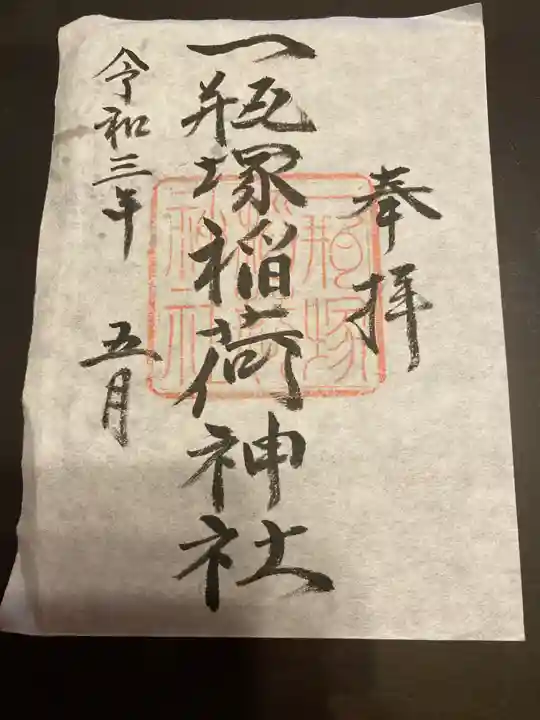 奉拝
一瓶塚稲荷神社
令和三年 五月
一瓶塚稲荷神社